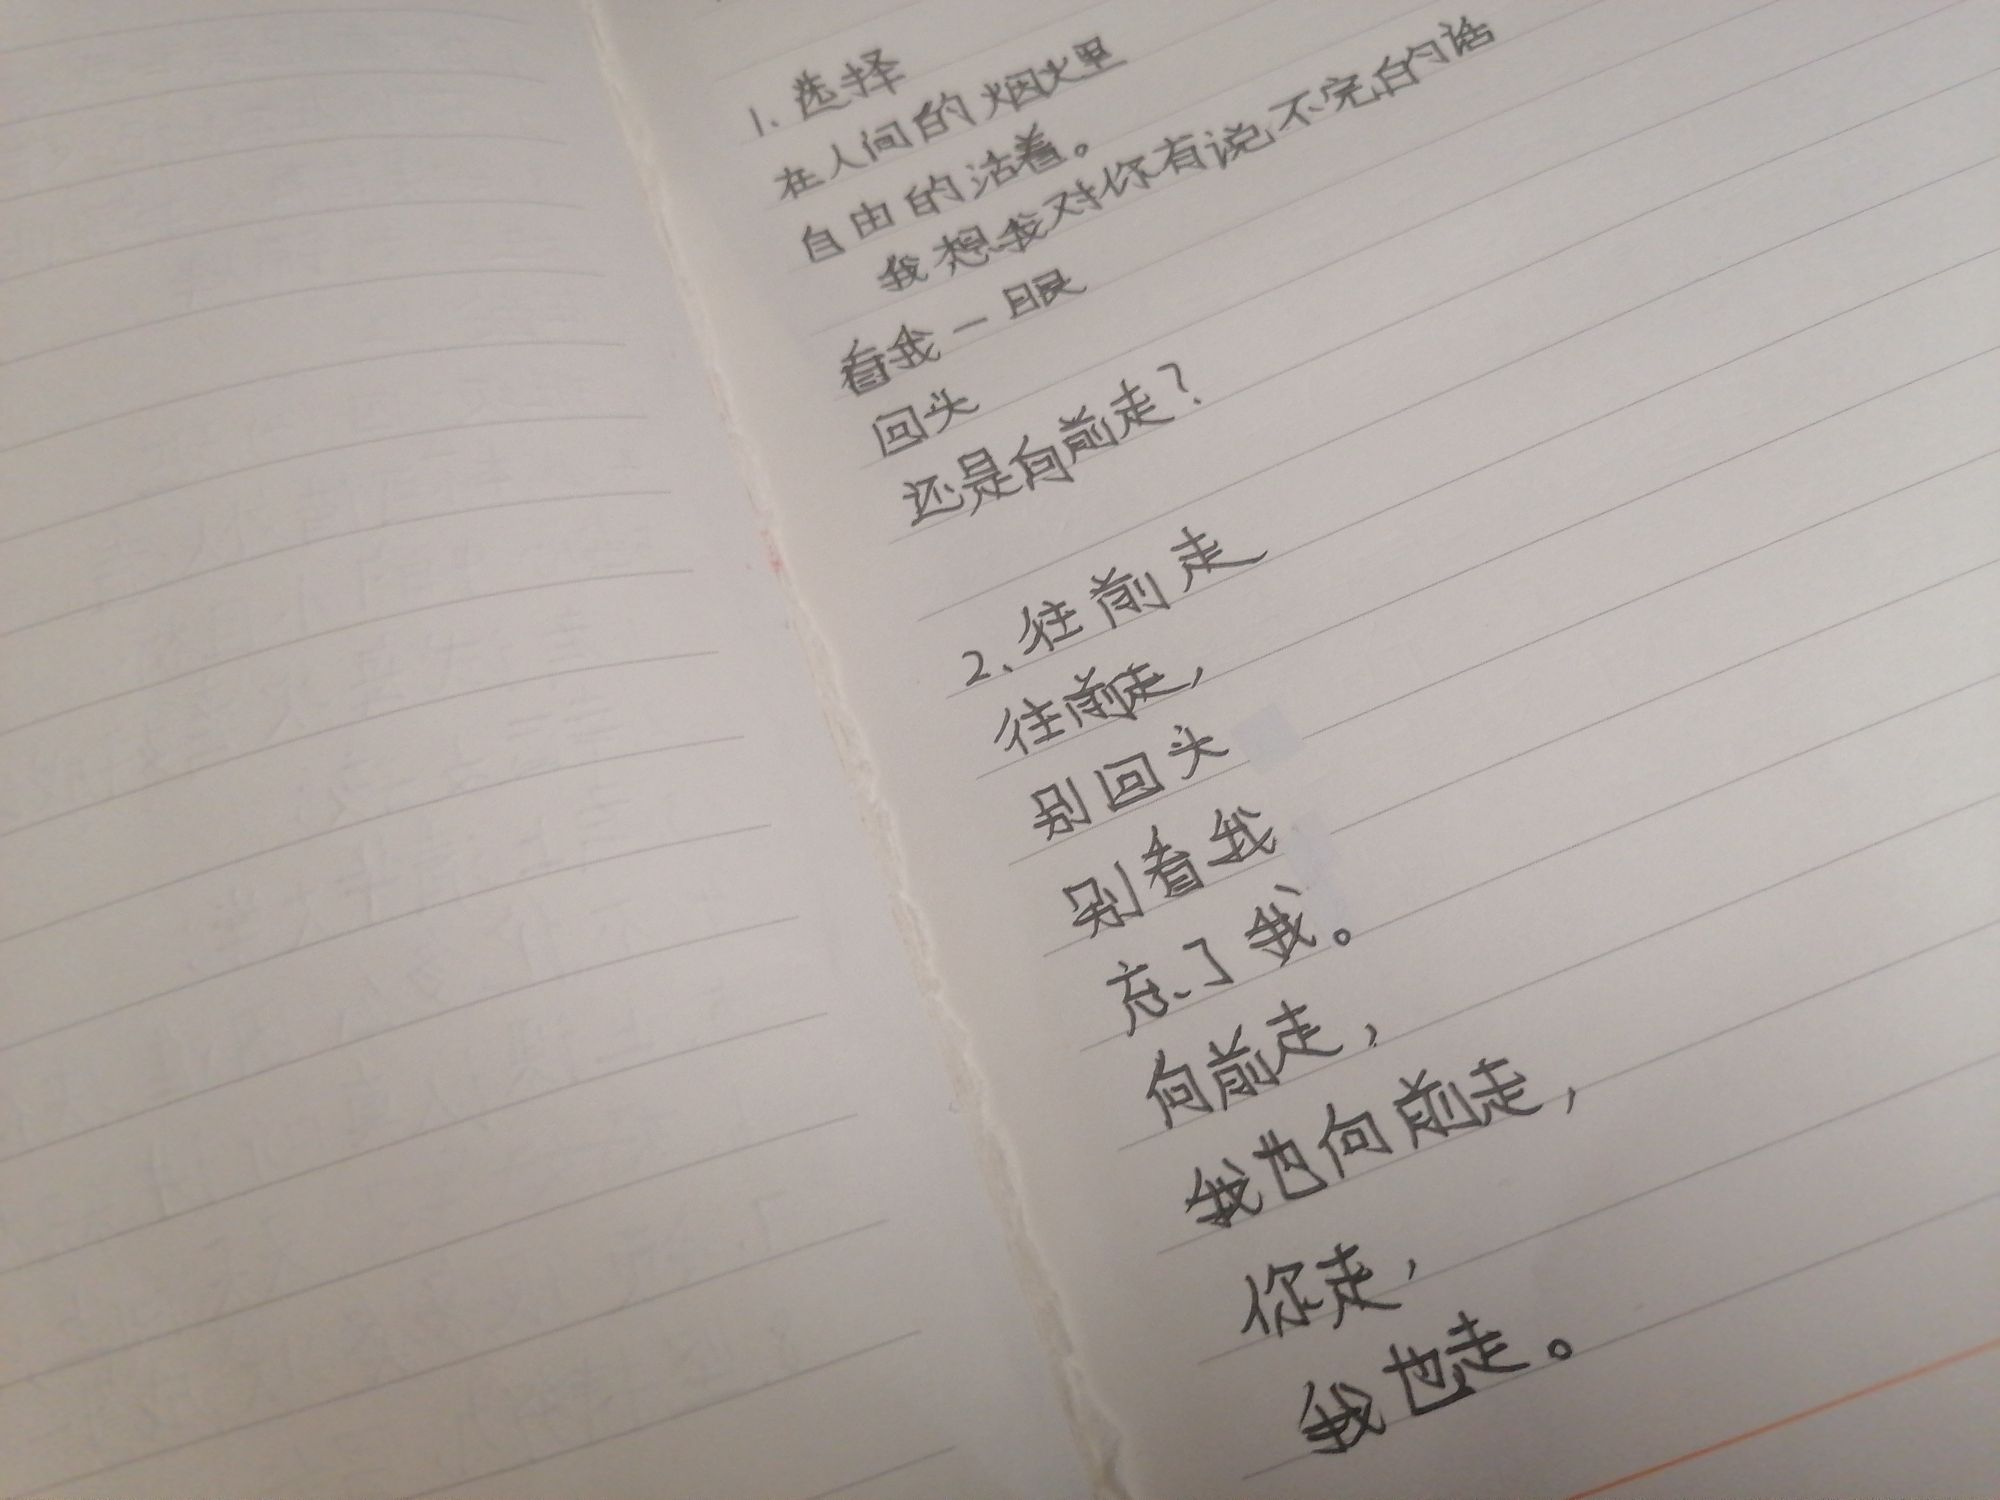 1、选择
在人间的烟火里
自由的活着。
我想我对你有说不完的话
看我一眼
回头
还是向前走？
2、往前走
往前走，
别回头
别看我
忘了我。
向前走，
我也向前走，
你走，
我也走。